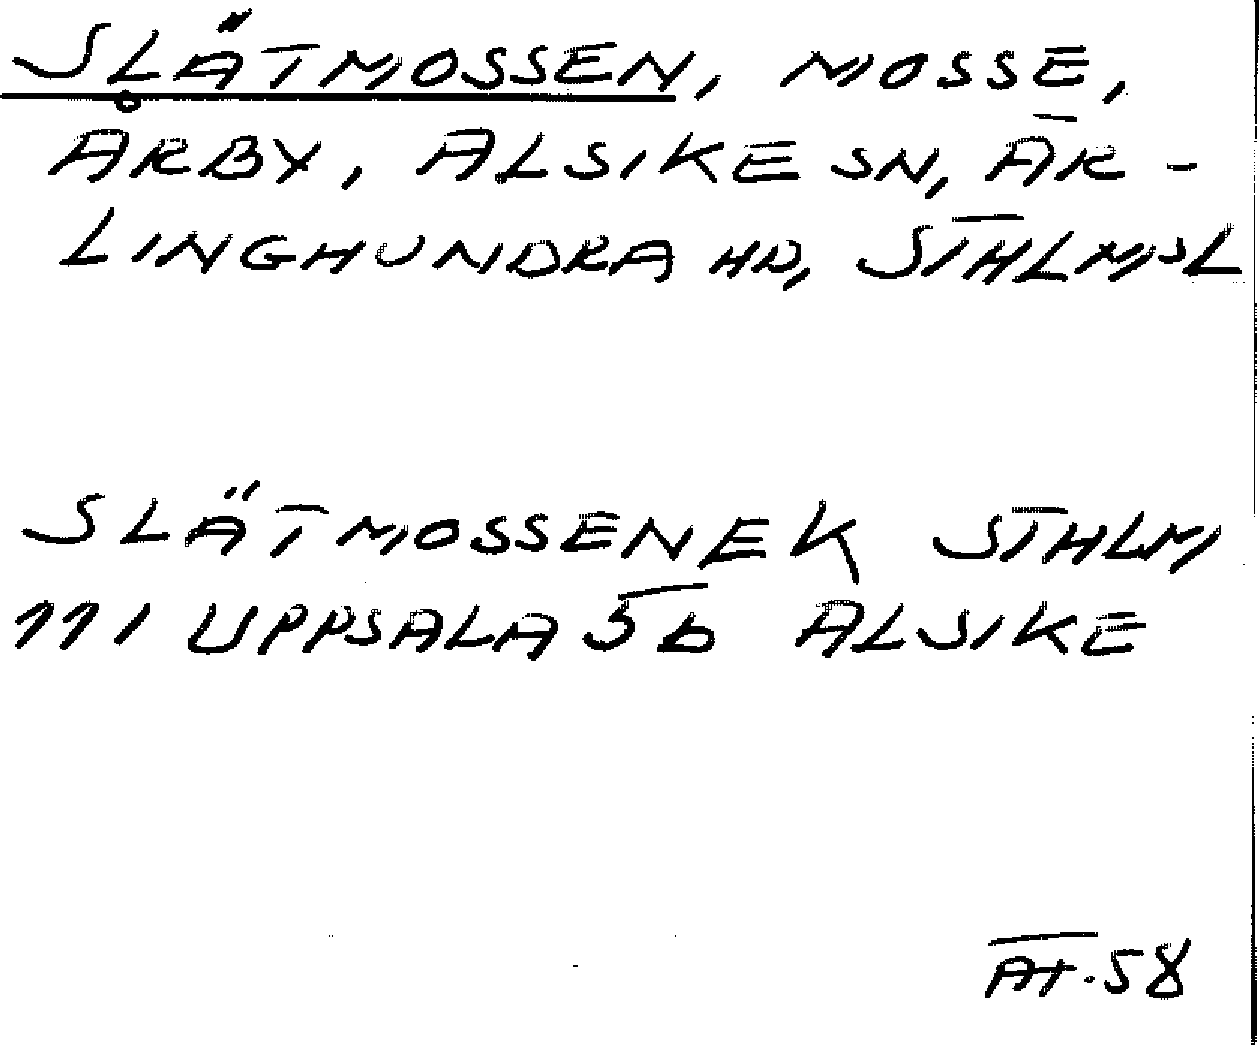 SLÄTMOSSEN, MOSSE,
ÅRBY, ALSIKE SN, ÄR-
LINGHUNDRA HD, STHLMSL
SLÄTMOSSEN EK STHLM
111 UPPSALA 5b ALSIKE
ÄT.58